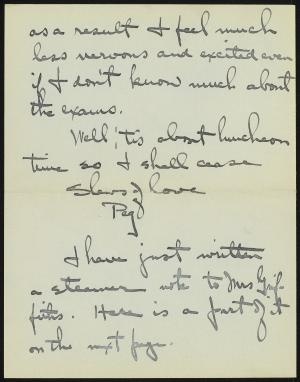 as a result I feel much
less nervous and excited even
if I don't know much about
the exams.
Well, 'tis about luncheon
time so I shall cease
Slews of love
Peg
I have just written
a steamer note to Mrs Grif-
fiths. Here is a part of it
on the next page.